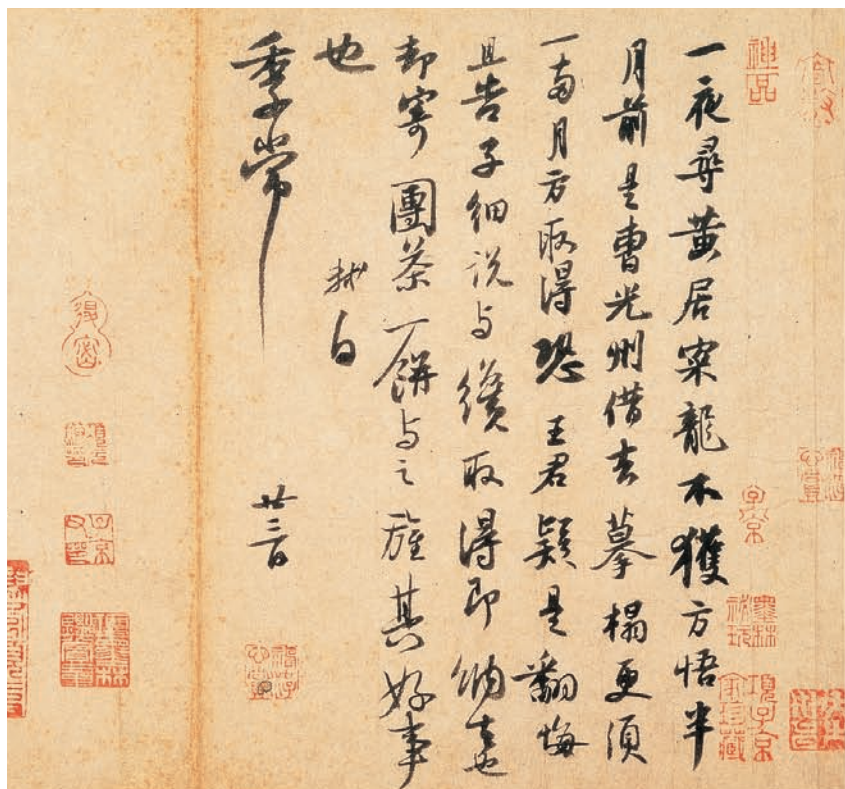 神品
子京
墨林秘玩
項子京家珍藏
一夜尋黃居寀龍不獲方悟半
月前是曹光州借去摹榻更須
一兩月方取得恐王君疑是翻悔
且告子細說与纔取得即納去也
却寄團茶一餅与之旌其好事
也
軾白
季常
廿三日